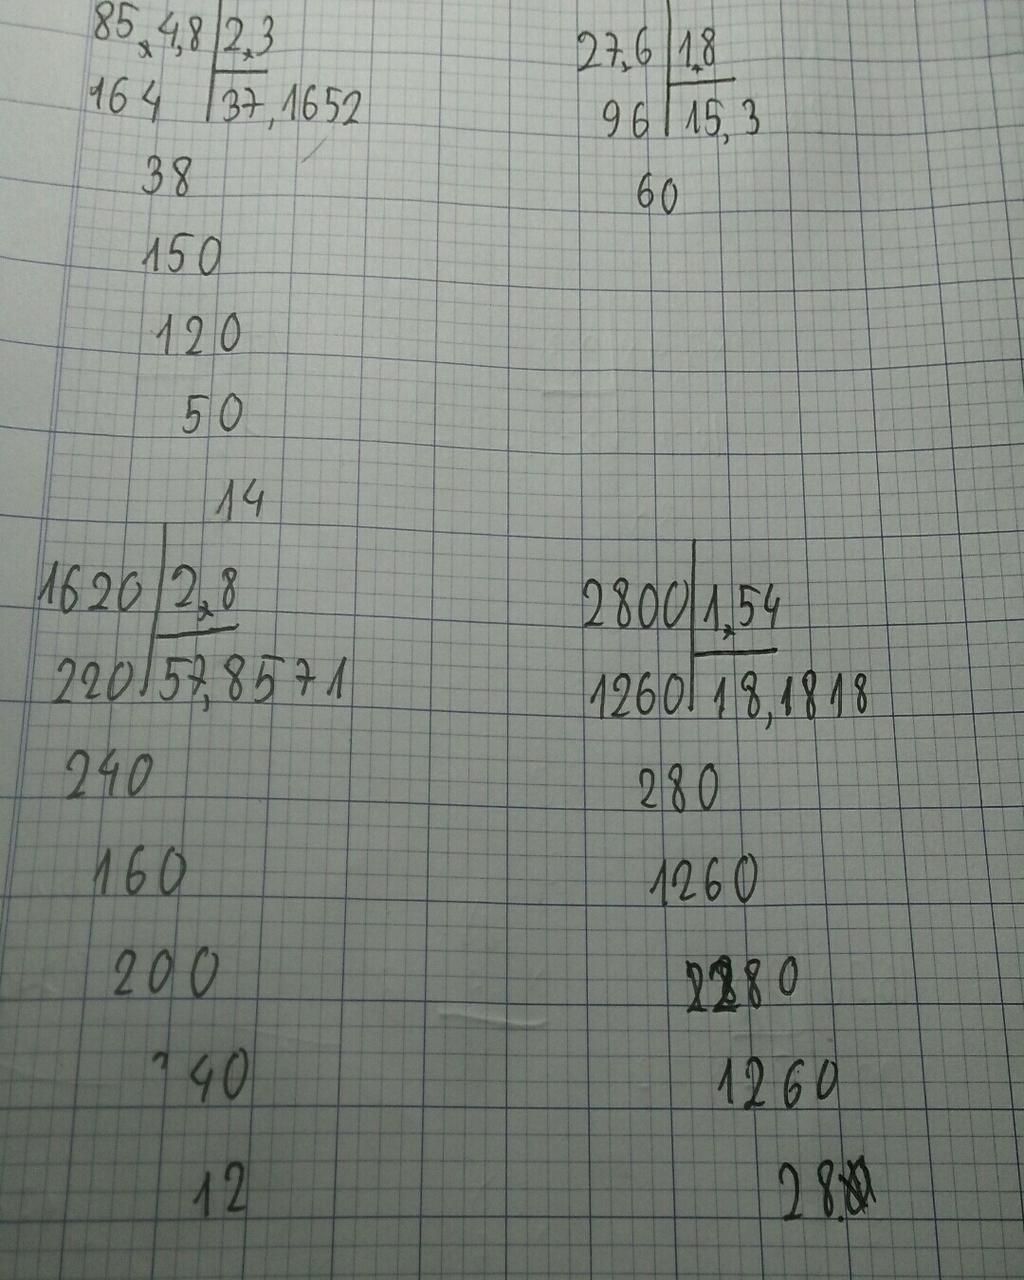 85,4,8 2,3
164 37,1652
38
150
120
50
14
27,6 1,8
96 15,3
60
1620 2,8
220 57,8571
240
160
200
40
12
2800 1,54
1260 18,1818
280
1260
280
1260
28